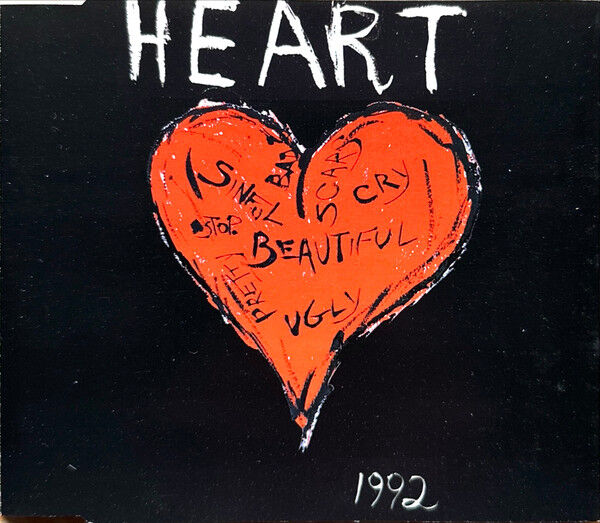 HEART
SINFUL
BAD
SCARY
CRY
STOP
BEAUTIFUL
PRETTY
UGLY
1992